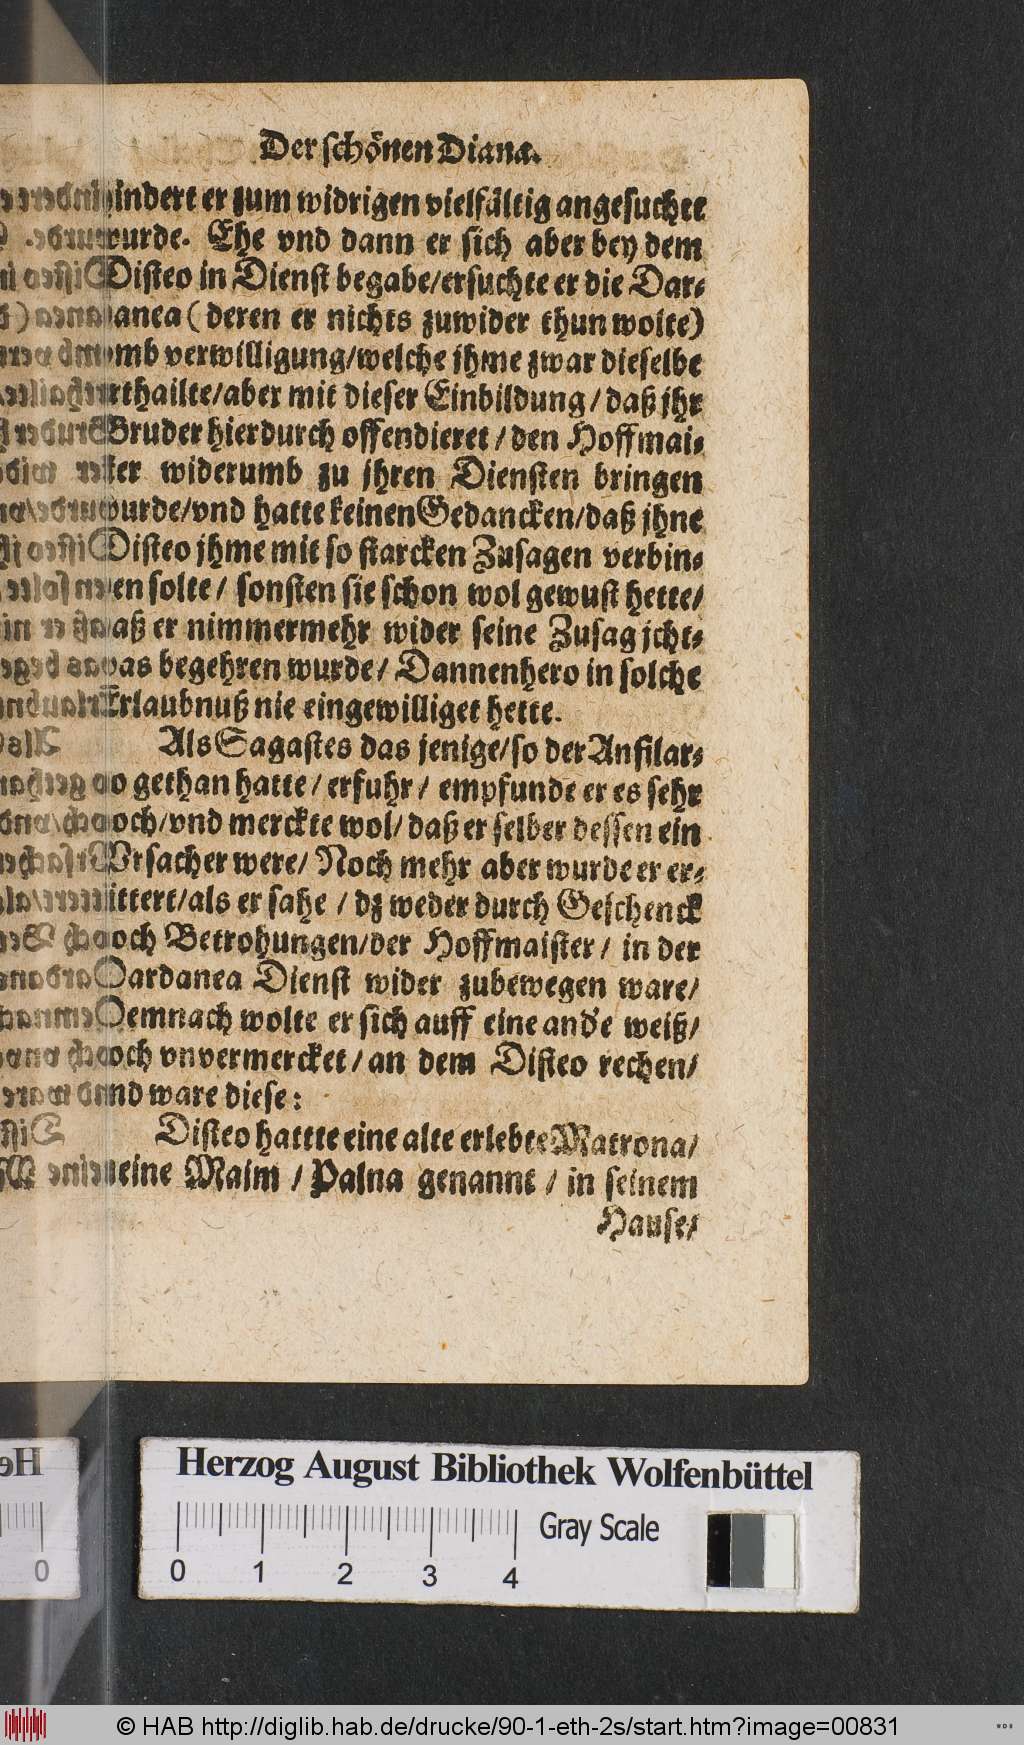 Der schönen Diana.
hindert er zum widrigen vielfältig angesuchet
wurde. Ehe vnd dann er sich aber bey dem
Disteo in Dienst begabe/ersuchte er die Dar-
danea (deren er nichts zuwider thun wolte)
vmb verwilligung/welche jhme zwar dieselbe
erthailte/aber mit dieser Einbildung/daß jhr
Bruder hierdurch offendieret/den Hoffmai-
ster widerumb zu jhren Diensten bringen
wurde/vnd hatte keinen Gedancken/daß jhne
Disteo jhme mit so starcken Zusagen verbin-
den solte/ sonsten sie schon wol gewust hette/
daß er nimmermehr wider seine Zusag jcht-
was begehren wurde/ Dannenhero in solche
Erlaubnuß nie eingewilliget hette.
Als Sagastes das jenige/so der Anfilar-
do gethan hatte/erfuhr/ empfunde er es sehr
hoch/vnd merckte wol/daß er selber dessen ein
Vrsacher were/ Noch mehr aber wurde er er-
bittert/als er sahe/dz weder durch Geschenck
noch Betrohungen/der Hoffmaister/ in der
Dardanea Dienst wider zubewegen ware/
Demnach wolte er sich auff eine and'e weiß/
doch vnvermercket/an dem Disteo rechen/
vnd ware diese:
Disteo hattte eine alte erlebte Matrona/
seine Maim/Palna genannt/in seinem
Hause/
Herzog August Bibliothek Wolfenbüttel
Gray Scale
0 1 2 3 4
0
© HAB http://diglib.hab.de/drucke/90-1-eth-2s/start.htm?image=00831